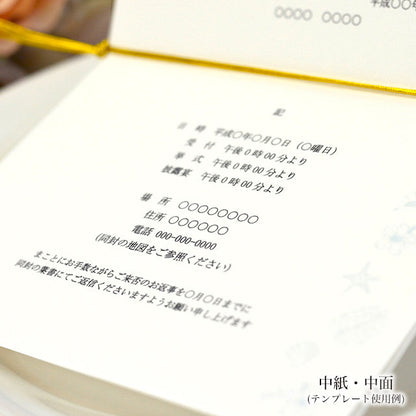 平成〇〇年
〇〇〇〇 〇〇〇〇
記
日 時 平成〇年〇月〇日（〇曜日）
受 付 午後0時00分より
挙 式 午後0時00分より
披露宴 午後0時00分より
場 所 〇〇〇〇〇〇〇〇
住所 〇〇〇〇〇〇
電話 000-000-0000
(同封の地図をご参照ください)
まことにお手数ながらご来否のお返事を〇月〇日までに
同封の葉書にてご返信くださいますようお願い申し上げます
中紙・中面
(テンプレート使用例)